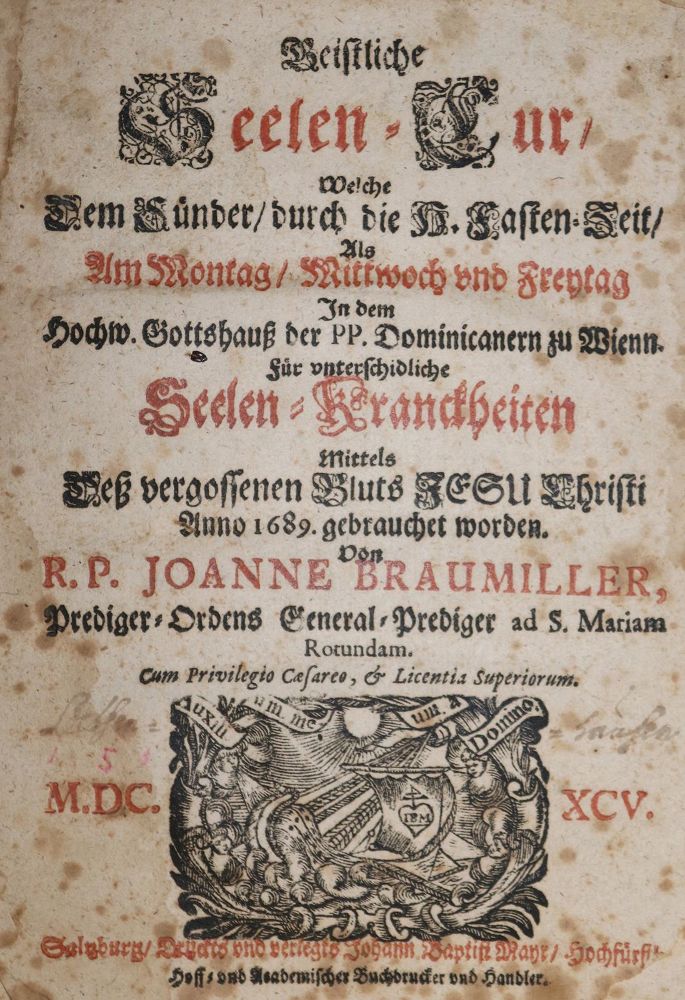 Geistliche
Seelen-Cur/
Welche
Dem Sünder/ durch die H. Fasten-Zeit/
Als
Am Montag/ Mittwoch vnd Freytag
In dem
Hochw. Gottshauß der PP. Dominicanern zu Wienn.
Für vnterschidliche
Seelen-Kranckheiten
Mittels
Deß vergossenen Bluts JESU Christi
Anno 1689. gebrauchet worden.
Von
R. P. JOANNE BRAUMILLER,
Prediger-Ordens General-Prediger ad S. Mariam
Rotundam.
Cum Privilegio Cæsareo, & Licentia Superiorum.
Auxili um. me um. a Domino.
IBM
M.DC. XCV.
Saltzburg/ Druckts vnd verlegts Johann Baptist Mayr/ Hochfürstl.
Hoff- vnd Academischer Buchdrucker vnd Handler.